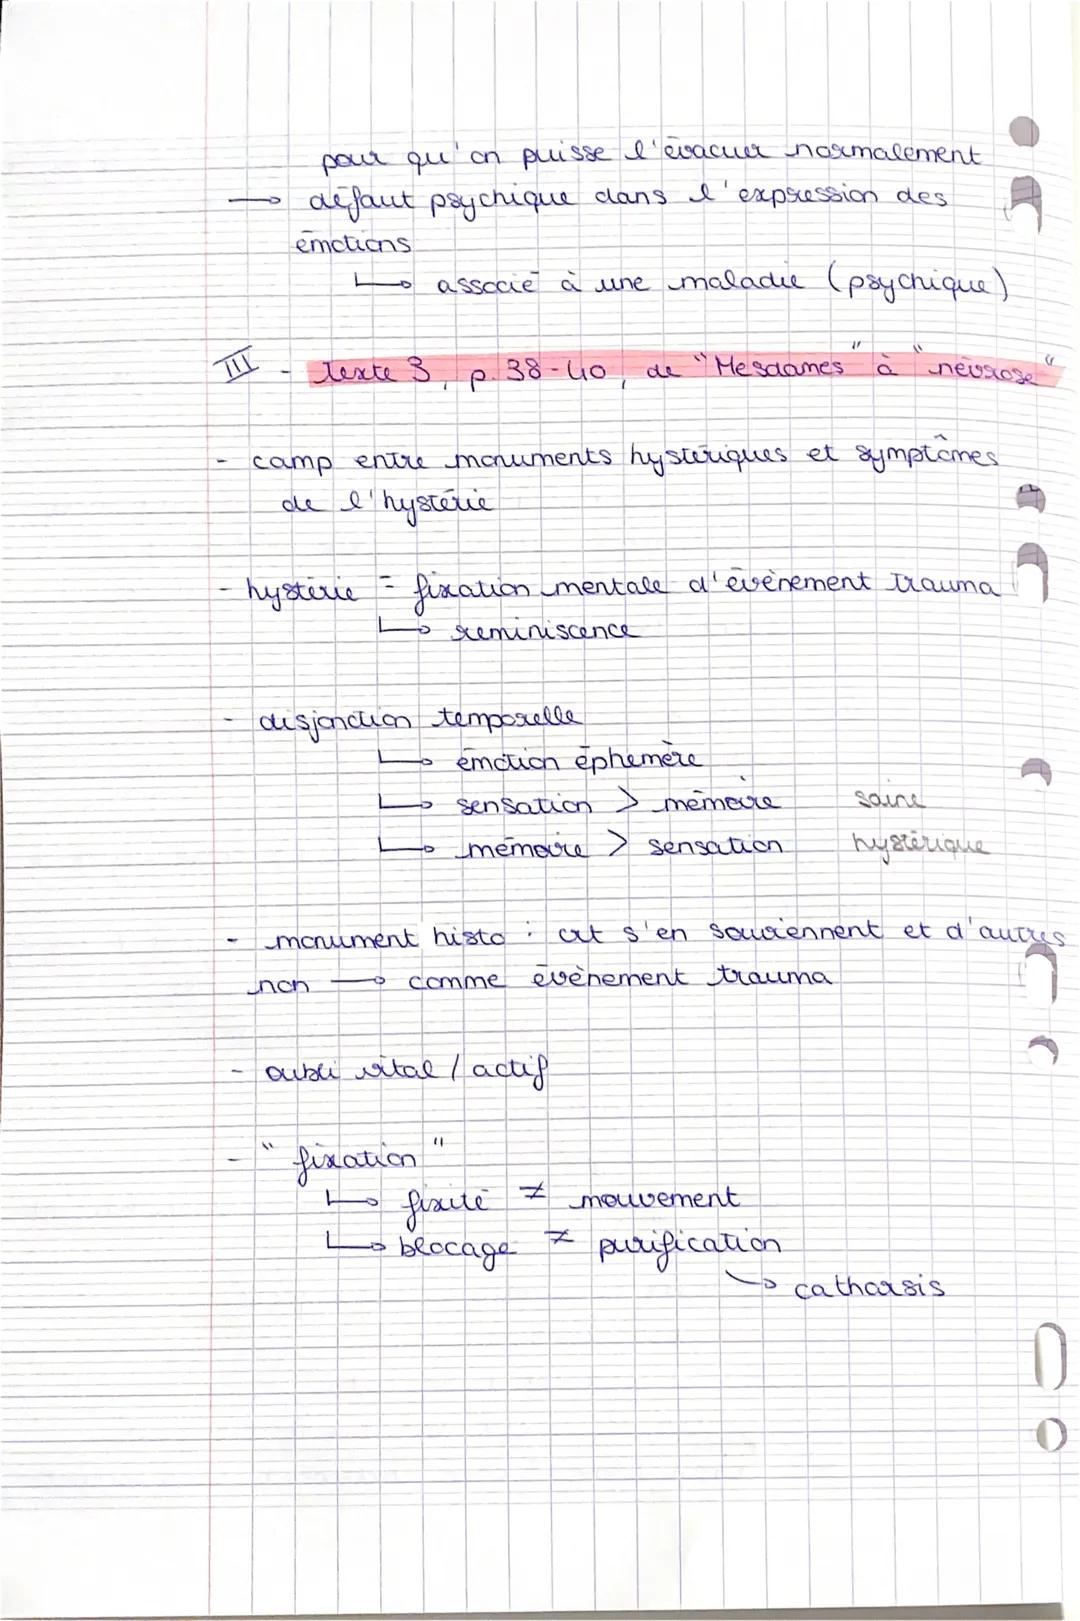 pour qu'on puisse l'évacuer normalement
→ défaut psychique dans l'expression des
émotions
↳ associé à une maladie (psychique)
III - texte 3, p. 38-40, de "Mesdames" à "névrose"
- camp entre monuments hystériques et symptômes
de l'hystérie
- hystérie = fixation mentale d'évènement trauma
↳ reminiscence
- disjonction temporelle
↳ émotion éphemère
↳ sensation > mémoire saine
↳ mémoire > sensation hystérique
- monument histo : crt s'en souviennent et d'autres
non → comme évènement trauma
- oubli vital / actif
- "fixation"
↳ fixité ≠ mouvement
↳ blocage ≠ purification
↳ catharsis